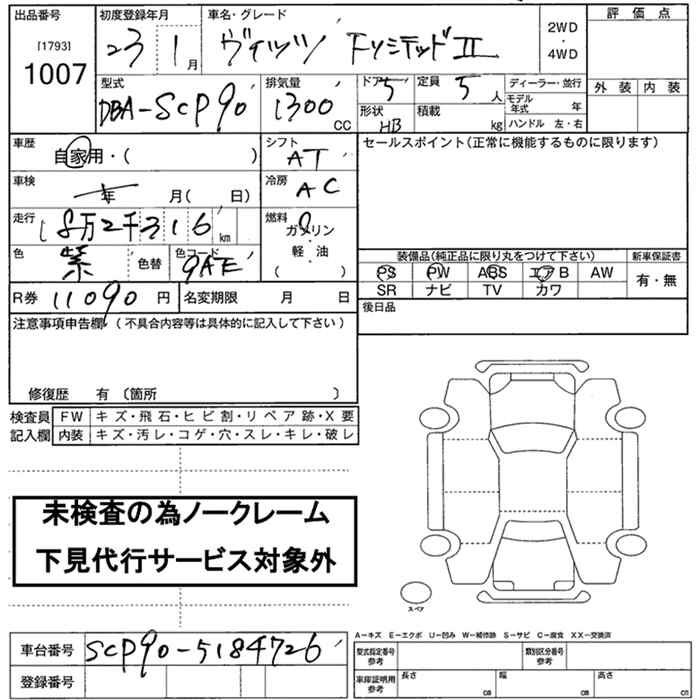 出品番号 初度登録年月 車名・グレード 評価点
[1793] 23 1月 ヴィッツ Fリミテッド II 2WD・4WD
1007
型式 排気量 ドア 定員 ディーラー・並行 外装 内装
DBA-SCP90 1300 CC 5 5人 モデル年式 年
形状 HB 積載 kg ハンドル 左・右
車歴 自家用・( ) シフト AT セールスポイント(正常に機能するものに限ります)
車検 年 月( 日) 冷房 AC
走行 8万2千316 km 燃料 ガソリン・軽油 ( )
色 紫 色替 色コード 9AE 装備品(純正品に限り丸をつけて下さい) 新車保証書
PS PW ABS エアB AW 有・無
SR ナビ TV カワ
R券 11090円 名変期限 月 日 後日品
注意事項申告欄(不具合内容等は具体的に記入して下さい)
修復歴 有 〔箇所 〕
検査員 FW キズ・飛石・ヒビ割・リペア跡・X要
記入欄 内装 キズ・汚レ・コゲ・穴・スレ・キレ・破レ
未検査の為ノークレーム
下見代行サービス対象外
スペア
A-キズ E-エクボ U-凹み W-補修跡 S-サビ C-腐食 XX-交換済
車台番号 SCP90-5184726 型式指定番号 参考 類別区分番号 参考
登録番号 車庫証明用 参考 長さ cm 幅 cm 高さ cm